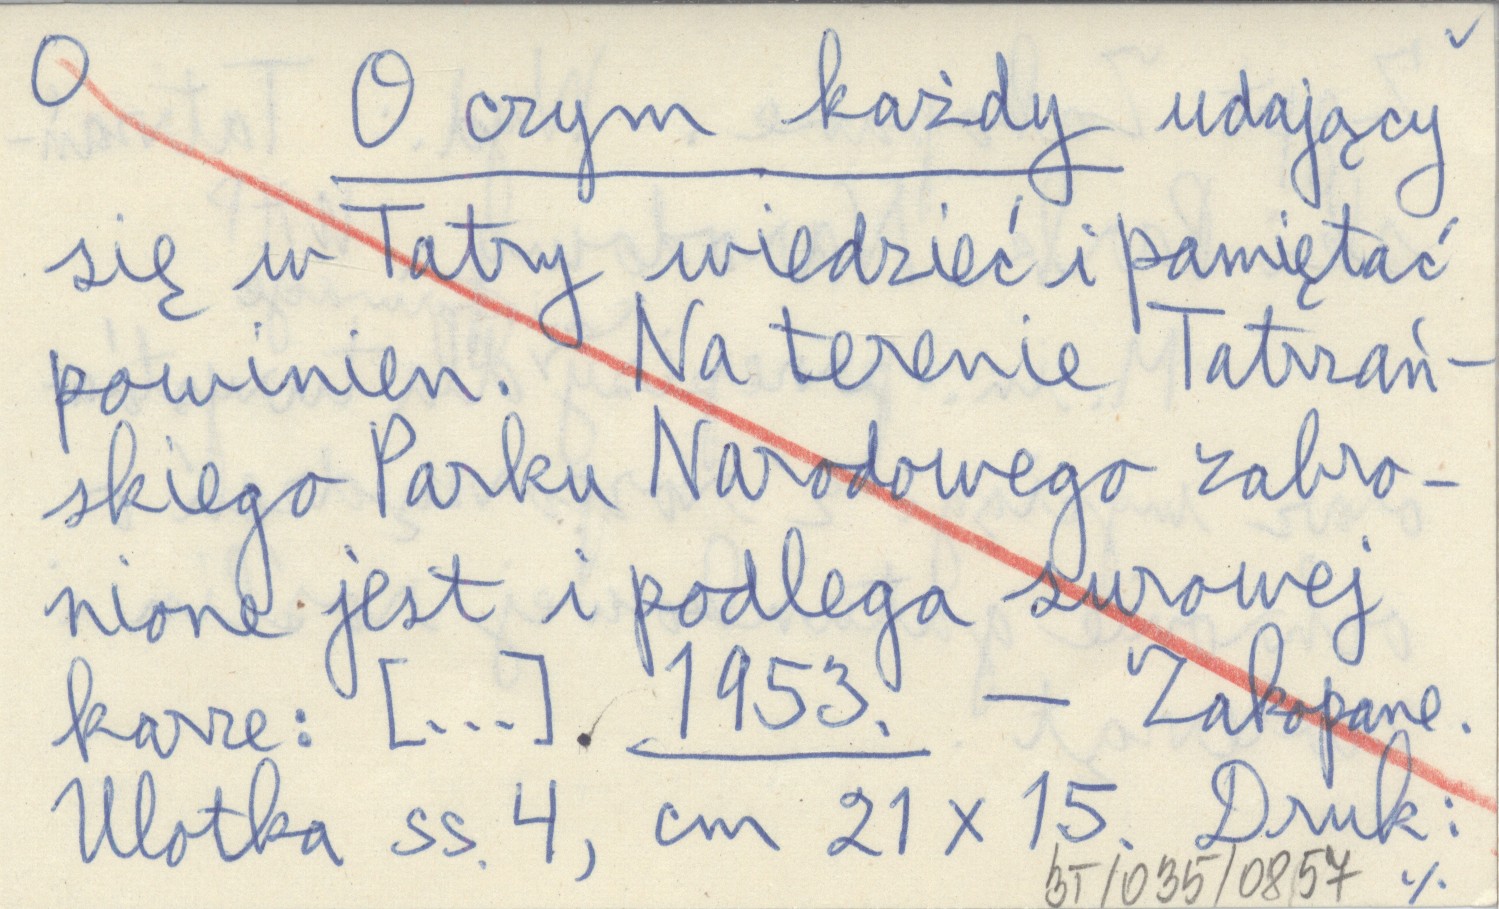 O O czym każdy udający
się w Tatry wiedzieć i pamiętać
powinien. Na terenie Tatrzań-
skiego Parku Narodowego zabro-
nione jest i podlega surowej
karze: [...]. 1953. — Zakopane.
Ulotka ss. 4, cm 21 x 15. Druk:
BT/035/0857 ./.